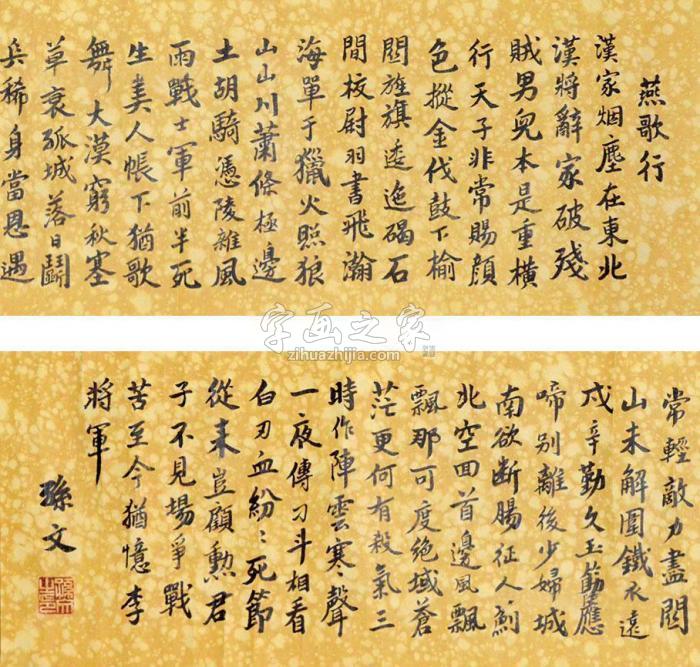 燕歌行
漢家烟塵在東北
漢將辭家破殘
賊男兒本是重橫
行天子非常賜顏
色摐金伐鼓下榆
関旌旗逶迤碣石
間校尉羽書飛瀚
海單于獵火照狼
山山川蕭條極邊
土胡騎憑陵雜風
雨戰士軍前半死
生美人帳下猶歌
舞大漠窮秋塞
草衰孤城落日鬭
兵稀身當恩遇
字画之家
zihuazhijia.com
常輕敵力盡関
山未解圍鐵衣遠
戍辛勤久玉筯應
啼別離後少婦城
南欲断腸征人薊
北空回首邊風飄
飄那可度絶域蒼
茫更何有殺氣三
時作陣雲寒〻聲
一夜傳刁斗相看
白刃血紛〻死節
從来豈顧勳君
子不見場爭戰
苦至今猶憶李
將軍
孫文